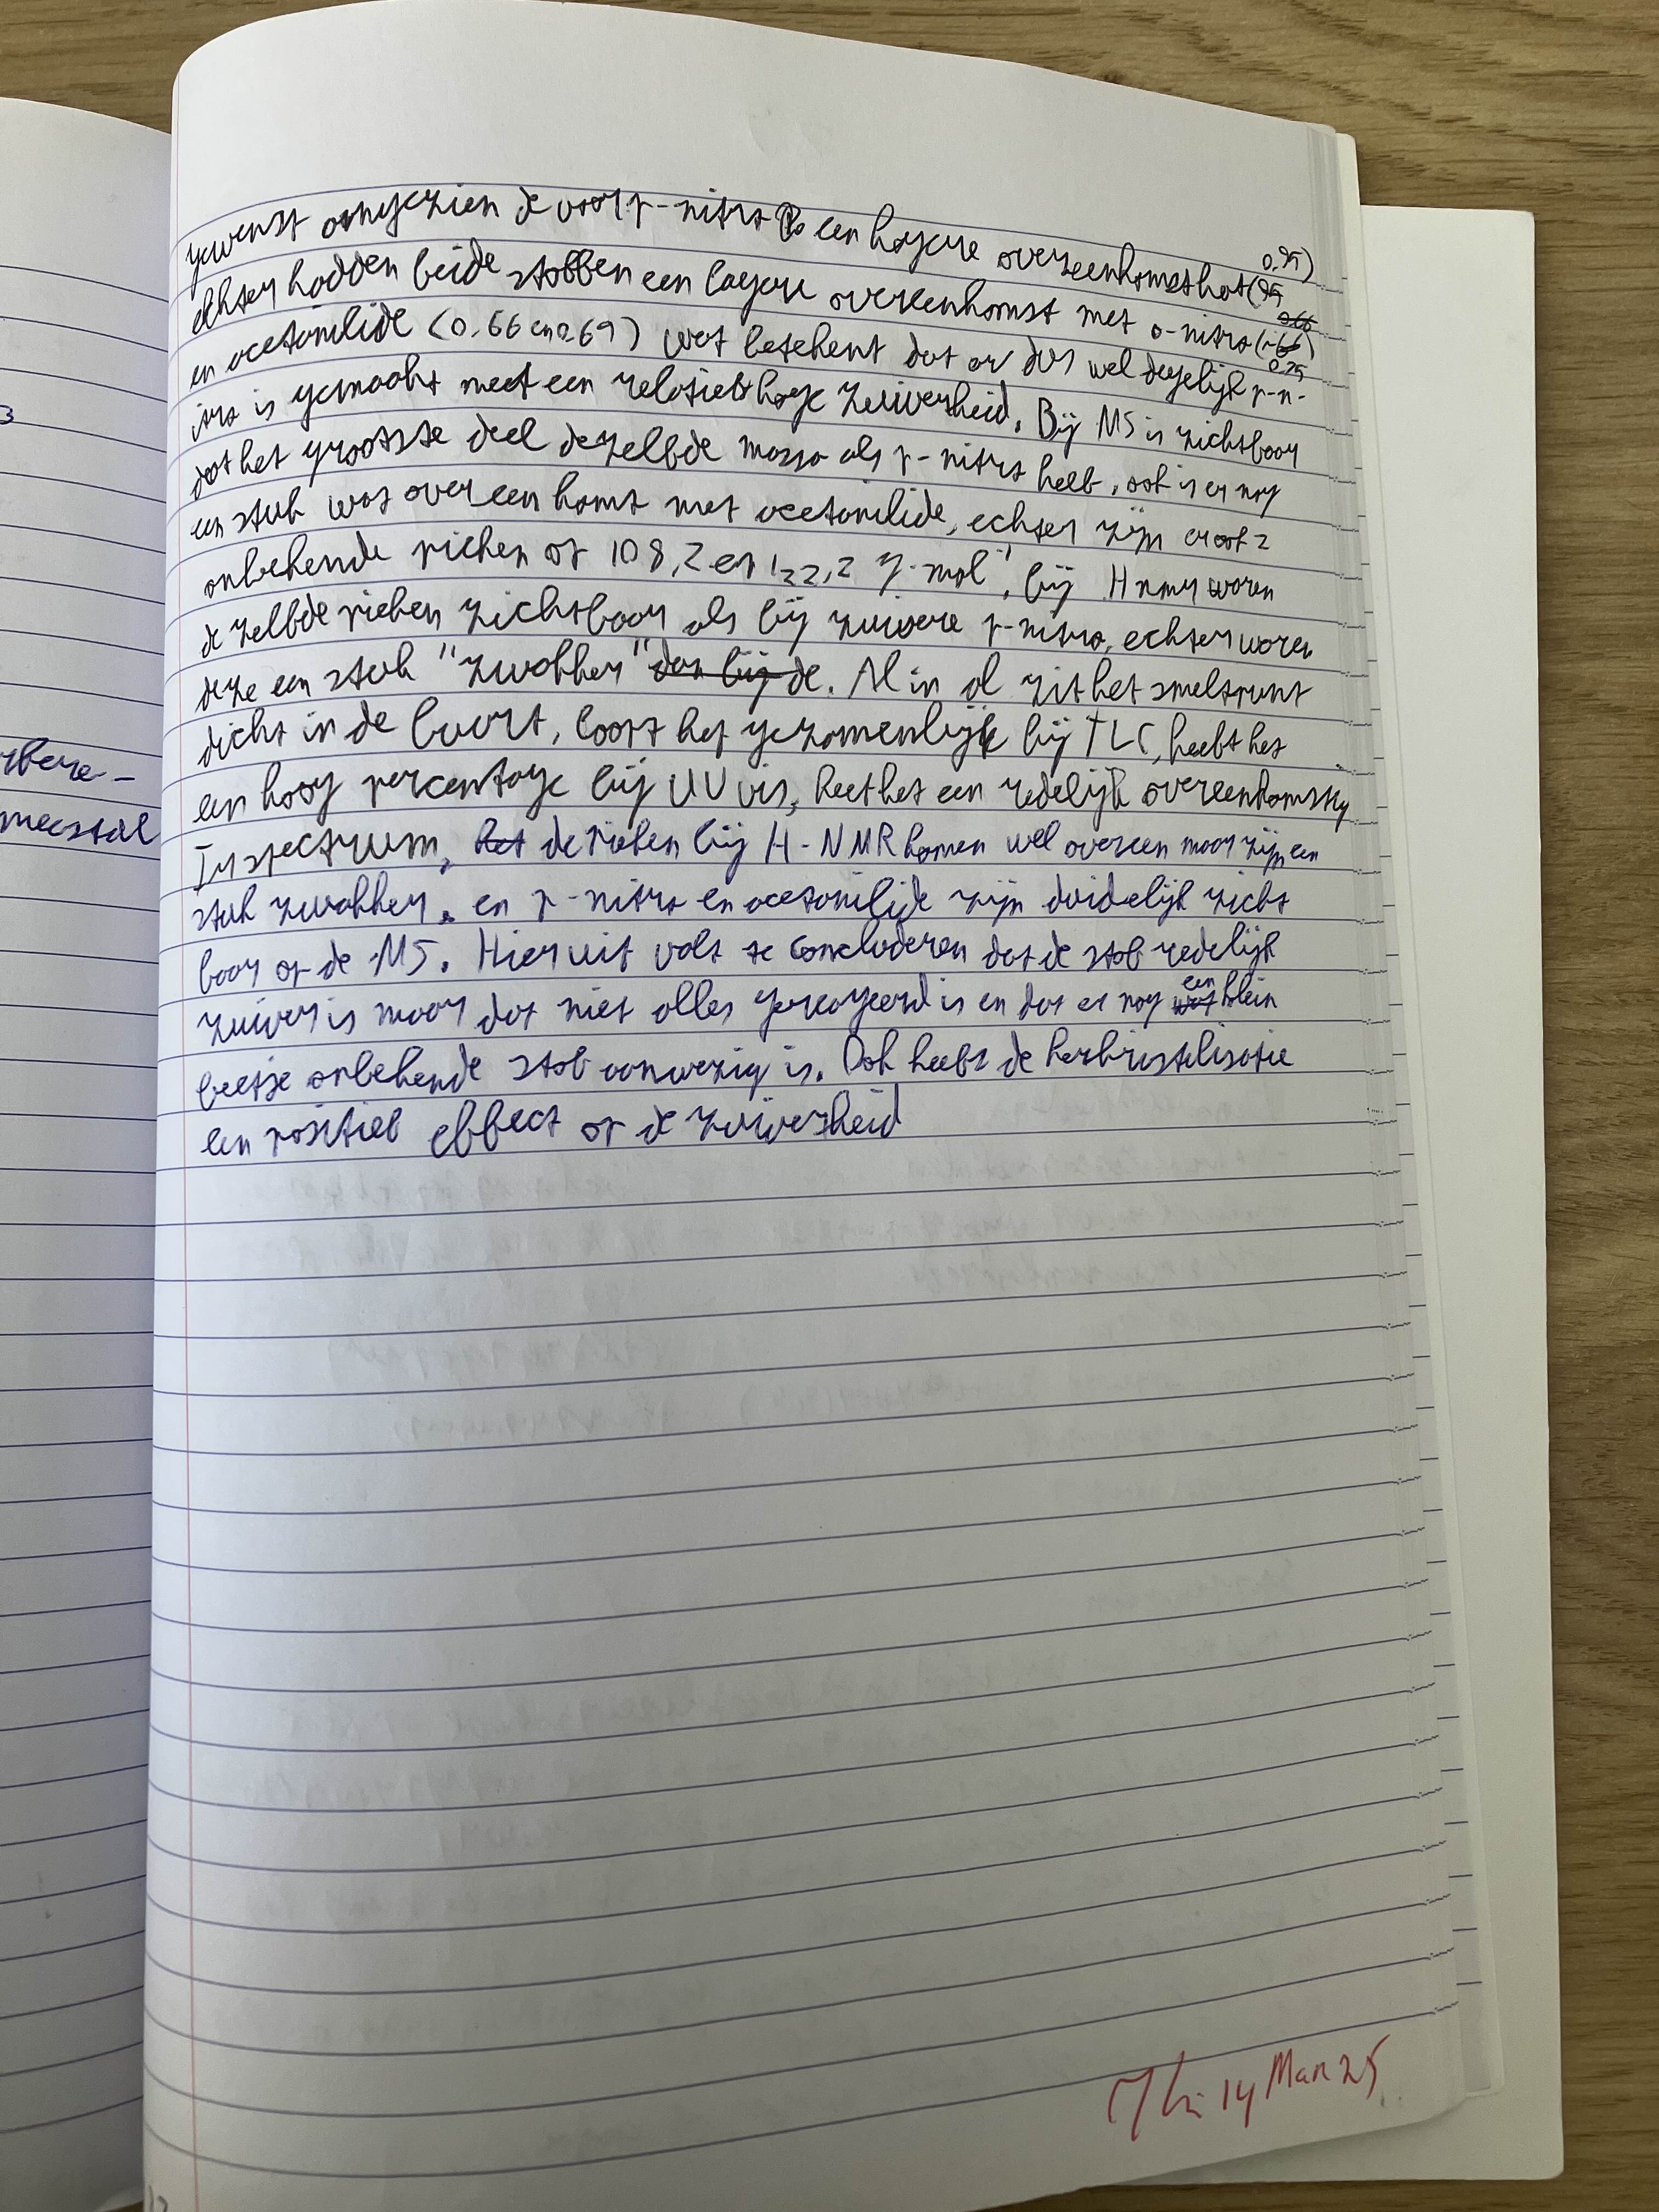 gewenst aangezien de voor p-nitro een hogere overeenkomst had (0,95)
echter hadden beide stoffen een lagere overeenkomst met o-nitro (0.75)
en acetanilide (0.66 en 0.69) wat betekent dat er dus wel degelijk p-n-
itro is gemaakt met een relatief hoge zuiverheid. Bij MS is zichtbaar
dat het grootste deel dezelfde massa als p-nitro heeft, ook is er nog
een stuk wat overeenkomt met acetanilide, echter zijn er ook 2
onbekende pieken op 108,2 en 122,2 g·mol⁻¹, bij H nmr waren
dezelfde pieken zichtbaar als bij zuivere p-nitro, echter waren
deze een stuk "zwakker" dan bij de. Al in al zit het smeltpunt
dicht in de buurt, loopt het gezamenlijk bij TLC, heeft het
een hoog percentage bij UV vis, heet het een redelijk overeenkomstig
Ir spectrum, het de pieken bij H-NMR komen wel overeen maar zijn een
stuk zwakker, en p-nitro en acetanilide zijn duidelijk zicht
baar op de MS. Hieruit valt te concluderen dat de stof redelijk
zuiver is maar dat niet alles gereageerd is en dat er nog wat een klein
beetje onbekende stof aanwezig is. Ook heeft de herkristelisatie
een positief effect op de zuiverheid
rbere-
meestal
14 Mar 25